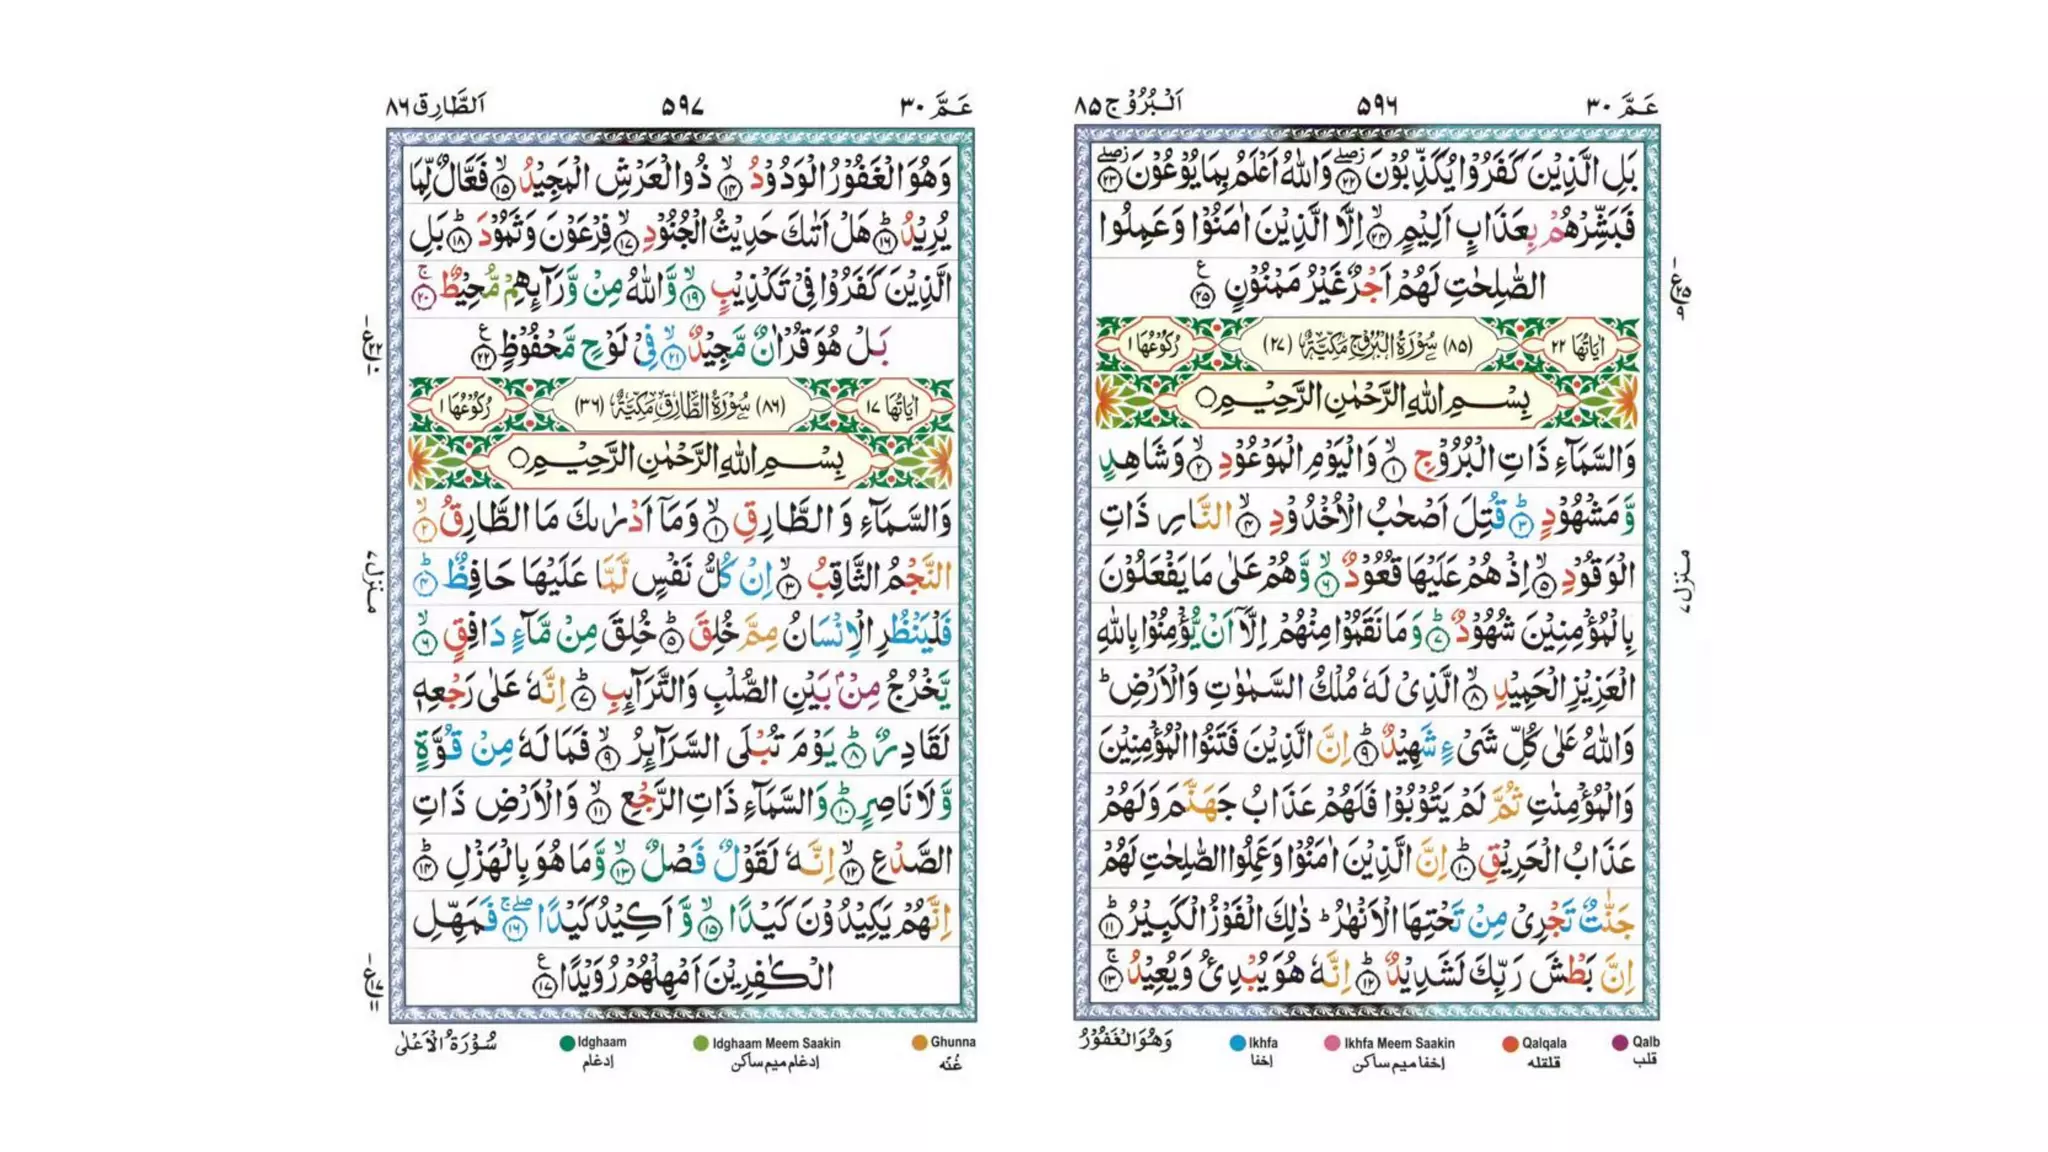 عَمَّ ۳۰ ۵۹۶ اَلْبُرُوْج ۸۵
بَلِ الَّذِيْنَ كَفَرُوْا يُكَذِّبُوْنَ ۲۲ وَاللّٰهُ اَعْلَمُ بِمَا يُوْعُوْنَ ۲۳
فَبَشِّرْهُمْ بِعَذَابٍ اَلِيْمٍ ۲۴ اِلَّا الَّذِيْنَ اٰمَنُوْا وَعَمِلُوا
الصّٰلِحٰتِ لَهُمْ اَجْرٌ غَيْرُ مَمْنُوْنٍ ۲۵
اٰيَاتُهَا ۲۲ (۸۵) سُوْرَةُ الْبُرُوْجِ مَكِّيَّةٌ (۲۷) رُكُوْعُهَا ۱
بِسْمِ اللّٰهِ الرَّحْمٰنِ الرَّحِيْمِ
وَالسَّمَآءِ ذَاتِ الْبُرُوْجِ ۱ وَالْيَوْمِ الْمَوْعُوْدِ ۲ وَشَاهِدٍ
وَّمَشْهُوْدٍ ۳ قُتِلَ اَصْحٰبُ الْاُخْدُوْدِ ۴ النَّارِ ذَاتِ
الْوَقُوْدِ ۵ اِذْ هُمْ عَلَيْهَا قُعُوْدٌ ۶ وَّهُمْ عَلٰى مَا يَفْعَلُوْنَ
بِالْمُؤْمِنِيْنَ شُهُوْدٌ ۷ وَمَا نَقَمُوْا مِنْهُمْ اِلَّآ اَنْ يُّؤْمِنُوْا بِاللّٰهِ
الْعَزِيْزِ الْحَمِيْدِ ۸ الَّذِيْ لَهٗ مُلْكُ السَّمٰوٰتِ وَالْاَرْضِ ؕ
وَاللّٰهُ عَلٰى كُلِّ شَيْءٍ شَهِيْدٌ ۹ اِنَّ الَّذِيْنَ فَتَنُوا الْمُؤْمِنِيْنَ
وَالْمُؤْمِنٰتِ ثُمَّ لَمْ يَتُوْبُوْا فَلَهُمْ عَذَابُ جَهَنَّمَ وَلَهُمْ
عَذَابُ الْحَرِيْقِ ۱۰ اِنَّ الَّذِيْنَ اٰمَنُوْا وَعَمِلُوا الصّٰلِحٰتِ لَهُمْ
جَنّٰتٌ تَجْرِيْ مِنْ تَحْتِهَا الْاَنْهٰرُ ؕ ذٰلِكَ الْفَوْزُ الْكَبِيْرُ ۱۱
اِنَّ بَطْشَ رَبِّكَ لَشَدِيْدٌ ۱۲ اِنَّهٗ هُوَ يُبْدِئُ وَيُعِيْدُ ۱۳
منزل ۷
وَهُوَ الْغَفُوْرُ
Ikhfa Ikhfa Meem Saakin Qalqala Qalb
إخفا اخفا ميم ساكن قلقله قلب
عَمَّ ۳۰ ۵۹۷ اَلطَّارِق ۸۶
وَهُوَ الْغَفُوْرُ الْوَدُوْدُ ۱۴ ذُو الْعَرْشِ الْمَجِيْدُ ۱۵ فَعَّالٌ لِّمَا
يُرِيْدُ ۱۶ هَلْ اَتٰىكَ حَدِيْثُ الْجُنُوْدِ ۱۷ فِرْعَوْنَ وَثَمُوْدَ ۱۸ بَلِ
الَّذِيْنَ كَفَرُوْا فِيْ تَكْذِيْبٍ ۱۹ وَّاللّٰهُ مِنْ وَّرَآىِٕهِمْ مُّحِيْطٌ ۲۰
بَلْ هُوَ قُرْاٰنٌ مَّجِيْدٌ ۲۱ فِيْ لَوْحٍ مَّحْفُوْظٍ ۲۲
اٰيَاتُهَا ۱۷ (۸۶) سُوْرَةُ الطَّارِقِ مَكِّيَّةٌ (۳۶) رُكُوْعُهَا ۱
بِسْمِ اللّٰهِ الرَّحْمٰنِ الرَّحِيْمِ
وَالسَّمَآءِ وَالطَّارِقِ ۱ وَمَآ اَدْرٰىكَ مَا الطَّارِقُ ۲
النَّجْمُ الثَّاقِبُ ۳ اِنْ كُلُّ نَفْسٍ لَّمَّا عَلَيْهَا حَافِظٌ ۴
فَلْيَنْظُرِ الْاِنْسَانُ مِمَّ خُلِقَ ۵ خُلِقَ مِنْ مَّآءٍ دَافِقٍ ۶
يَّخْرُجُ مِنْۢ بَيْنِ الصُّلْبِ وَالتَّرَآىِٕبِ ۷ اِنَّهٗ عَلٰى رَجْعِهٖ
لَقَادِرٌ ۸ يَوْمَ تُبْلَى السَّرَآىِٕرُ ۹ فَمَا لَهٗ مِنْ قُوَّةٍ
وَّلَا نَاصِرٍ ۱۰ وَالسَّمَآءِ ذَاتِ الرَّجْعِ ۱۱ وَالْاَرْضِ ذَاتِ
الصَّدْعِ ۱۲ اِنَّهٗ لَقَوْلٌ فَصْلٌ ۱۳ وَّمَا هُوَ بِالْهَزْلِ ۱۴
اِنَّهُمْ يَكِيْدُوْنَ كَيْدًا ۱۵ وَّاَكِيْدُ كَيْدًا ۱۶ فَمَهِّلِ
الْكٰفِرِيْنَ اَمْهِلْهُمْ رُوَيْدًا ۱۷
منزل ۷
سُوْرَةُ الْاَعْلٰى
Idghaam Idghaam Meem Saakin Ghunna
إدغام إدغام ميم ساكن غُنّه